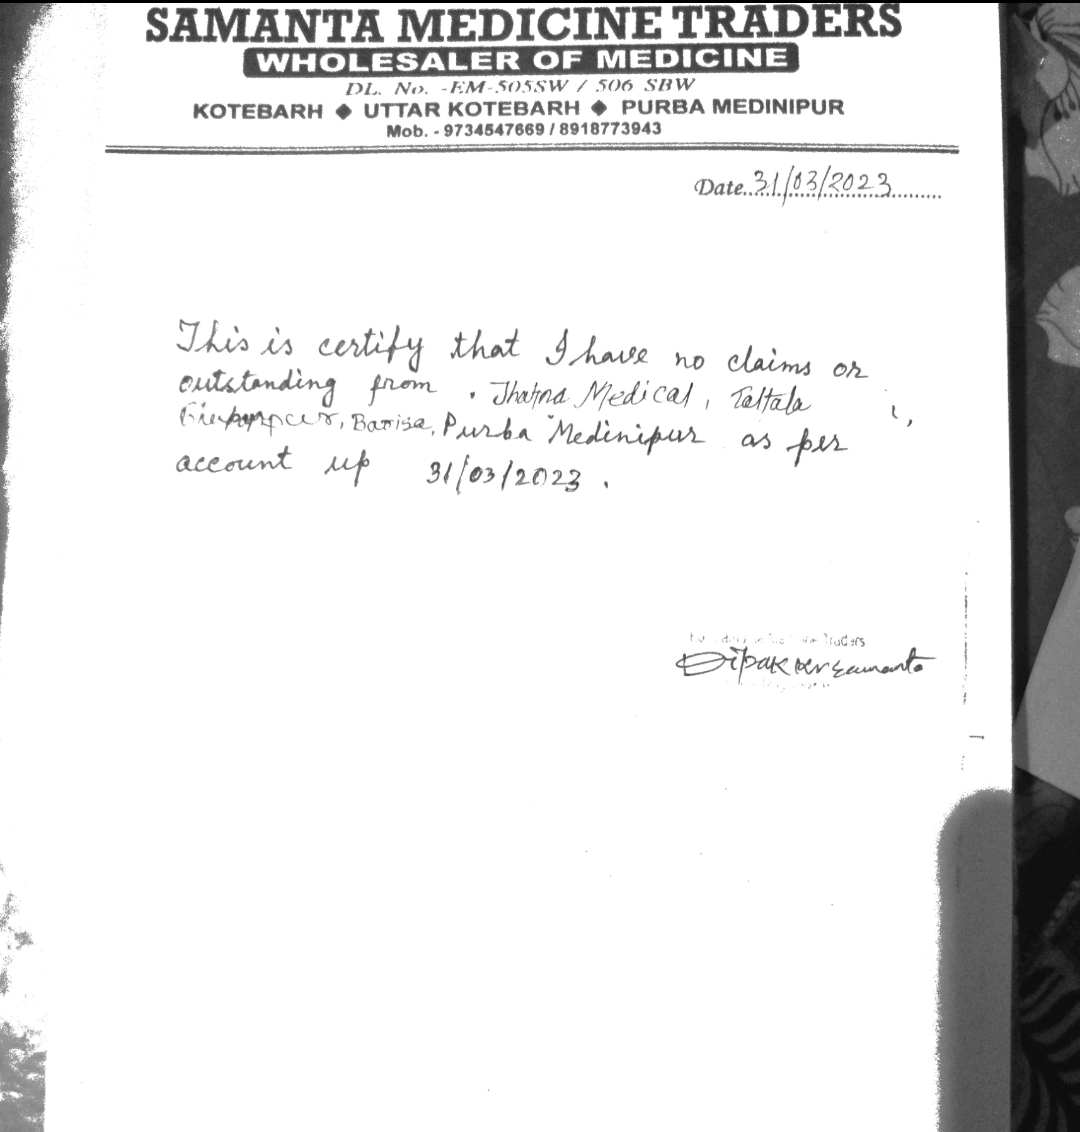 SAMANTA MEDICINE TRADERS
WHOLESALER OF MEDICINE
DL. No. -EM-505SW / 506 SBW
KOTEBARH ◆ UTTAR KOTEBARH ◆ PURBA MEDINIPUR
Mob. - 9734547669 / 8918773943
Date..31/03/2023..........
This is certify that I have no claims or
outstanding from . Medical, Taltala
Barisa, Purba Medinipur as per
account up 31/03/2023 .
Traders